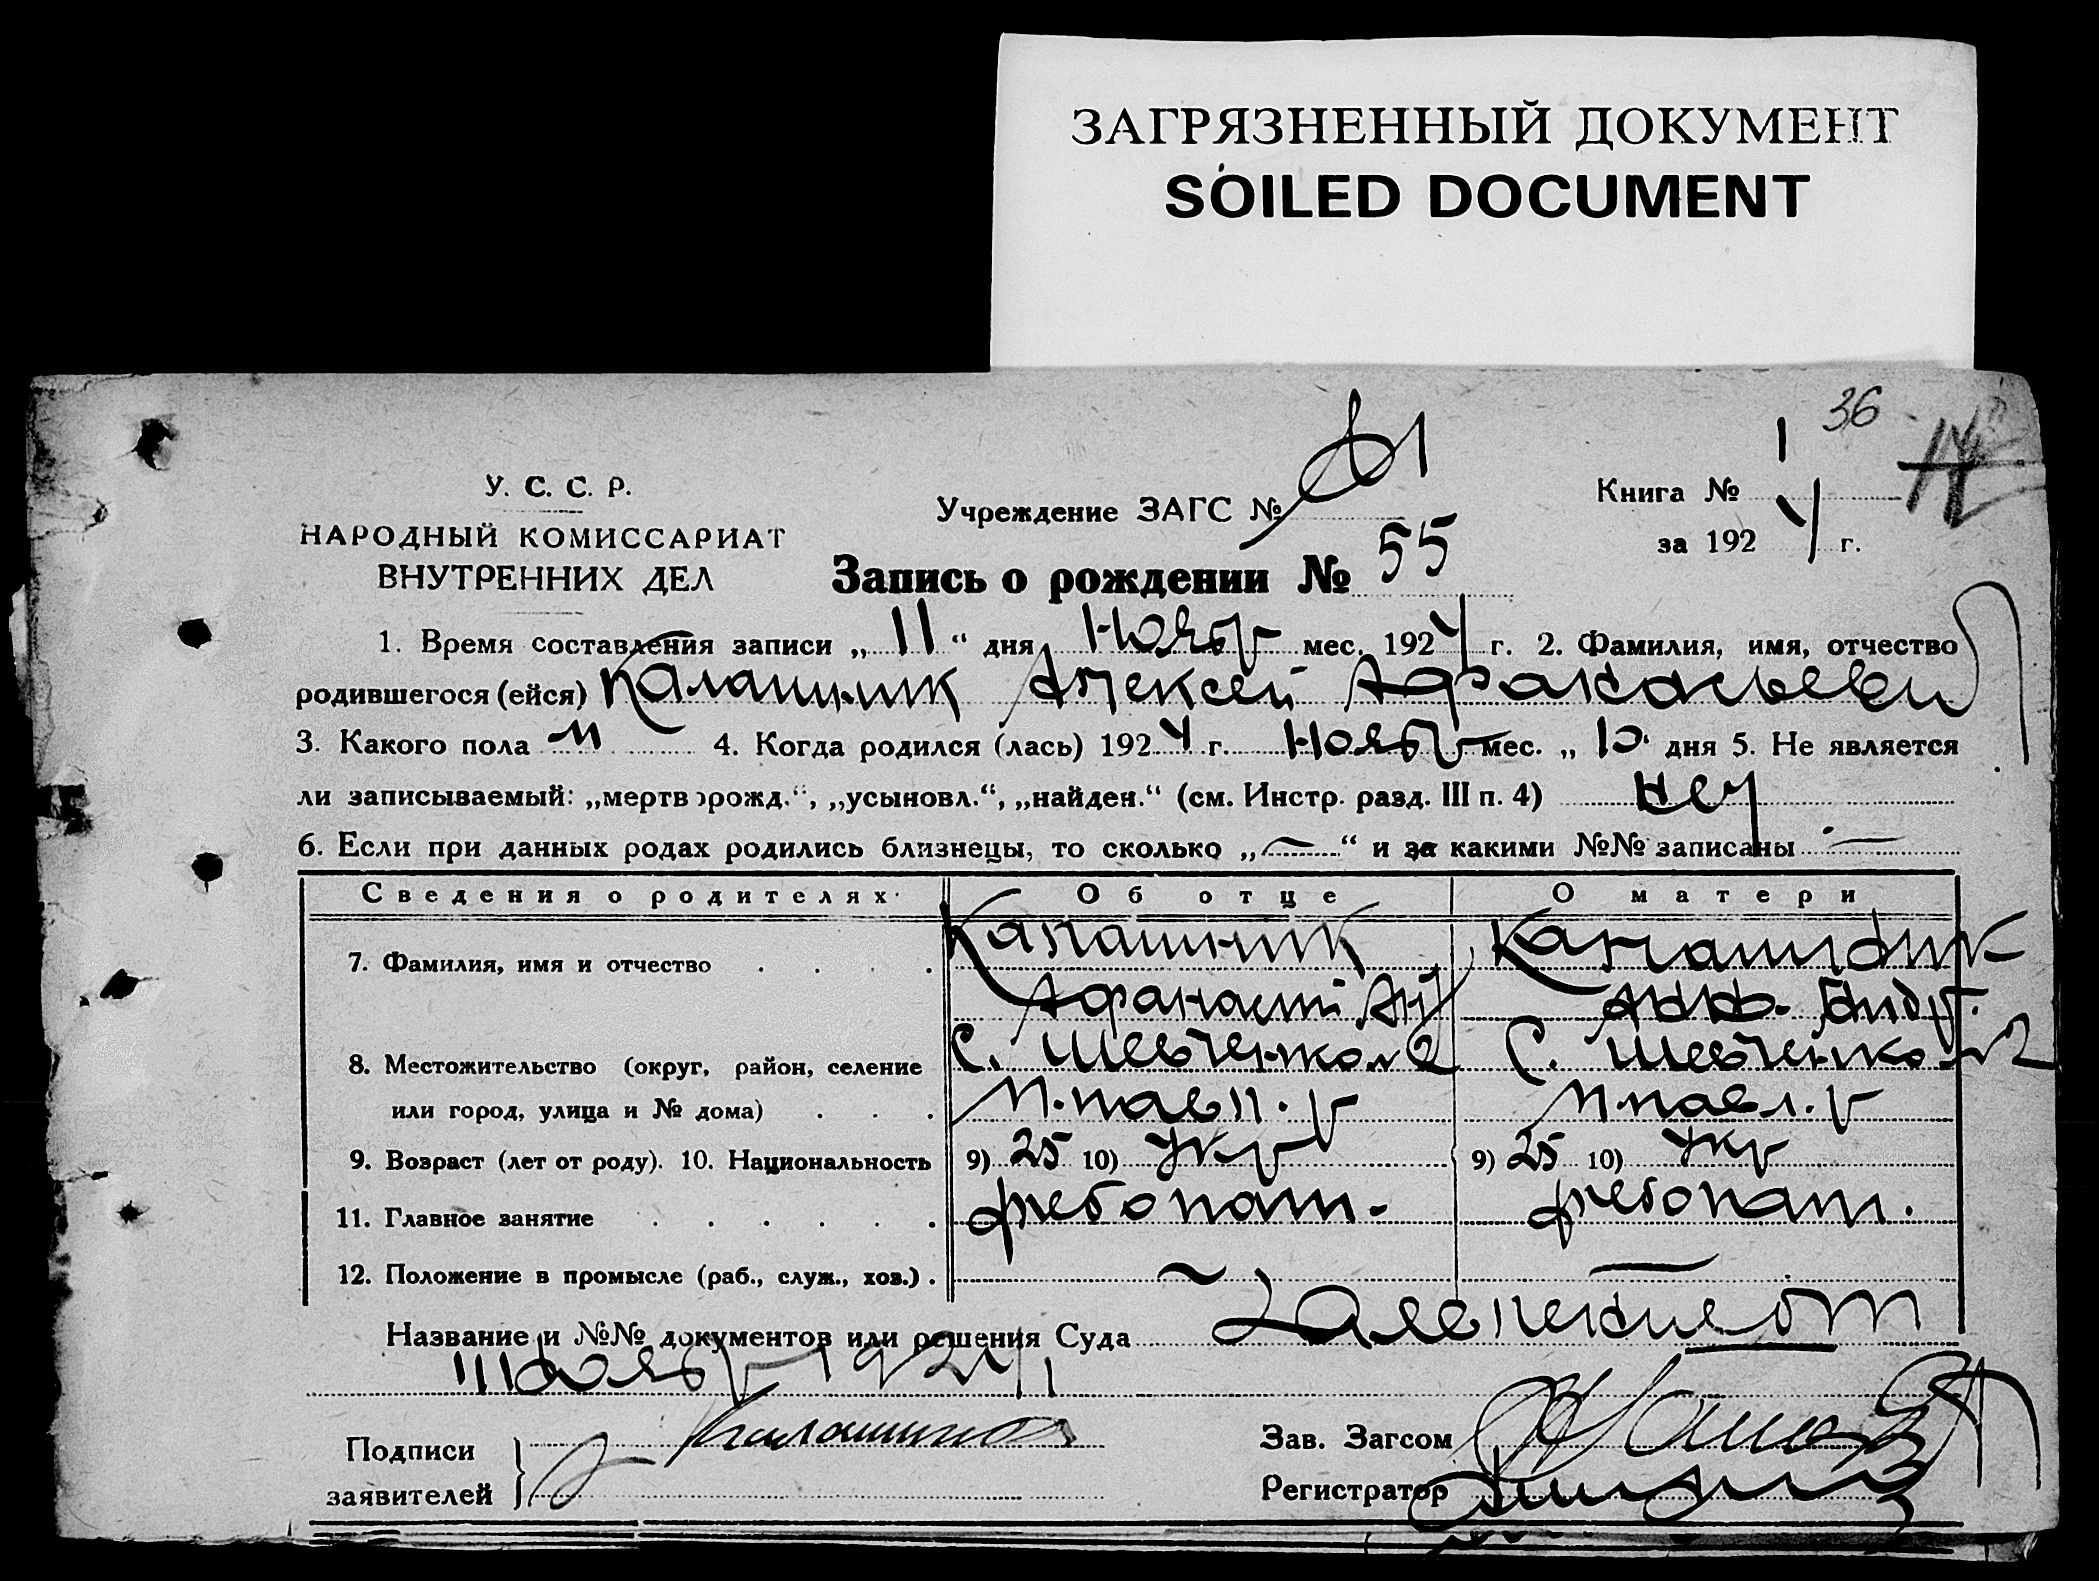 ЗАГРЯЗНЕННЫЙ ДОКУМЕНТ
SOILED DOCUMENT
36
У. С. С. Р.
НАРОДНЫЙ КОМИССАРИАТ
ВНУТРЕННИХ ДЕЛ
Учреждение ЗАГС №
Книга № 1
за 1924 г.
Запись о рождении № 55
1. Время составления записи „11“ дняНоябр мес. 1924 г. 2. Фамилия, имя, отчество
родившегося (ейся) Калашник Алексей Афанасьевич
3. Какого пола м 4. Когда родился (лась) 1924 г. Ноябр мес. „10“ дня 5. Не является
ли записываемый: „мертворожд.“, „усыновл.“, „найден.“ (см. Инстр. разд. III п. 4) нет
6. Если при данных родах родились близнецы, то сколько „—“ и за какими №№ записаны —
Сведения о родителях Об отце О матери
7. Фамилия, имя и отчество Калашник Калашник
Афанасий Андр.
8. Местожительство (округ, район, селение С. Шевченко С. Шевченко
или город, улица и № дома) М.павл. р М.павл. р
9. Возраст (лет от роду). 10. Национальность 9) 25 10) Укр 9) 25 10) Укр
11. Главное занятие хлебопаш. хлебопаш.
12. Положение в промысле (раб., служ., хоз.) — —
Название и №№ документов или решения Суда Заявление от
11 Ноябр 1924
Подписи
заявителей
Калашник
Зав. Загсом
Регистратор